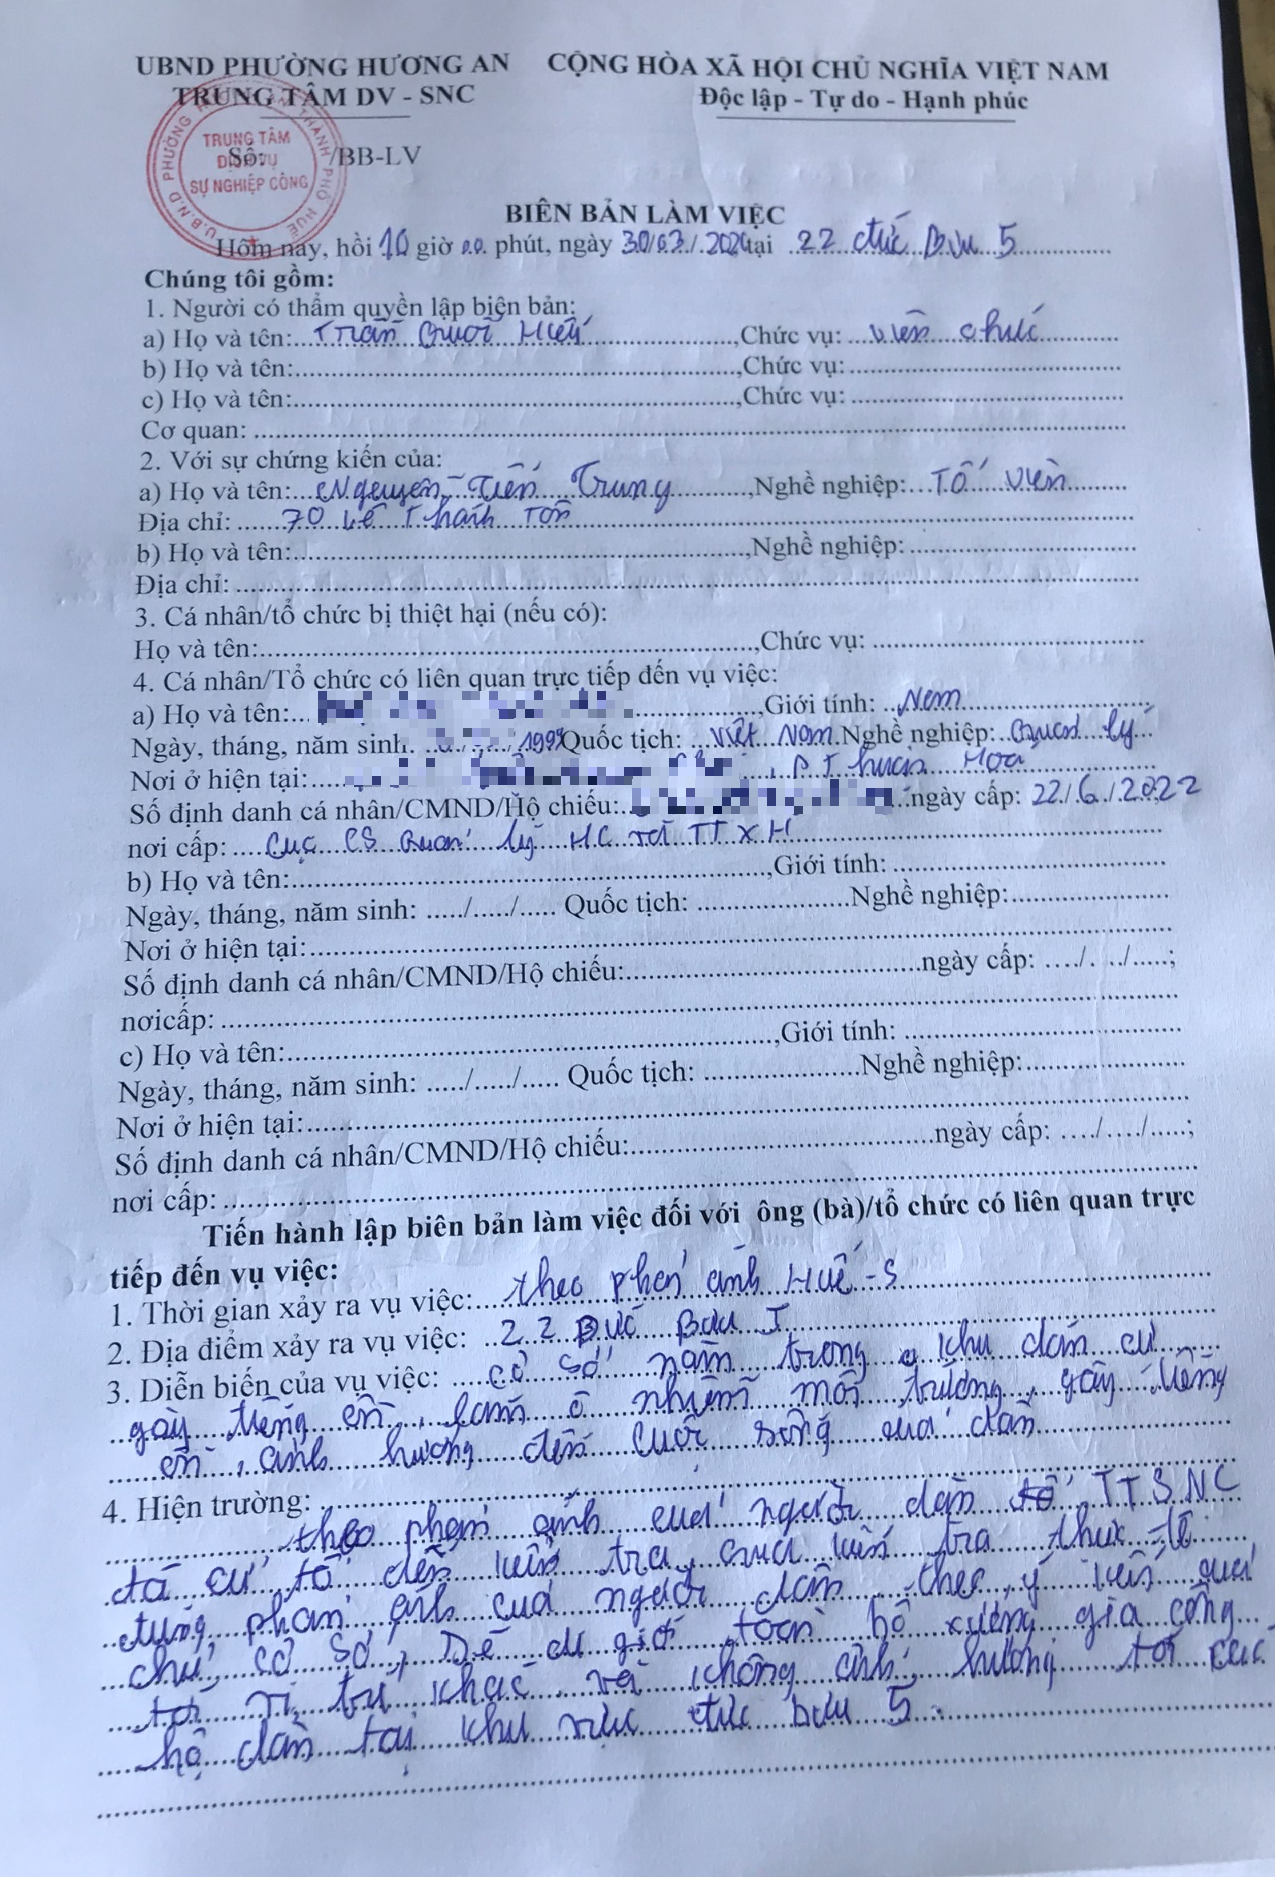 UBND PHƯỜNG HƯƠNG AN CỘNG HÒA XÃ HỘI CHỦ NGHĨA VIỆT NAM
TRUNG TÂM DV - SNC Độc lập - Tự do - Hạnh phúc
TRUNG TÂM
DỊCH VỤ
SỰ NGHIỆP CÔNG
U.B.N.D PHƯỜNG THÀNH PHỐ HUẾ
Số: /BB-LV
BIÊN BẢN LÀM VIỆC
Hôm nay, hồi 10 giờ 00 phút, ngày 30/03/2026 tại 22 đức Bưu 5
Chúng tôi gồm:
1. Người có thẩm quyền lập biên bản:
a) Họ và tên: Trần Quốc Hiếu, Chức vụ: viên chức
b) Họ và tên:, Chức vụ:
c) Họ và tên:, Chức vụ:
Cơ quan:
2. Với sự chứng kiến của:
a) Họ và tên: Nguyễn Tiến Trung, Nghề nghiệp: Tổ viên
Địa chỉ: 70 Lê Thánh Tôn
b) Họ và tên:, Nghề nghiệp:
Địa chỉ:
3. Cá nhân/tổ chức bị thiệt hại (nếu có):
Họ và tên:, Chức vụ:
4. Cá nhân/Tổ chức có liên quan trực tiếp đến vụ việc:
a) Họ và tên:, Giới tính: Nam
Ngày, tháng, năm sinh / / Quốc tịch: Việt Nam Nghề nghiệp: Quản lý
Nơi ở hiện tại:, P Thuận Hoá
Số định danh cá nhân/CMND/Hộ chiếu: ngày cấp: 22/6/2022
nơi cấp: Cục CS Quản lý HC và TTXH
b) Họ và tên:, Giới tính:
Ngày, tháng, năm sinh: ...../...../..... Quốc tịch: Nghề nghiệp:
Nơi ở hiện tại:
Số định danh cá nhân/CMND/Hộ chiếu: ngày cấp: ..../. ../.....;
nơicấp:
c) Họ và tên:, Giới tính:
Ngày, tháng, năm sinh: ...../...../..... Quốc tịch: Nghề nghiệp:
Nơi ở hiện tại:
Số định danh cá nhân/CMND/Hộ chiếu: ngày cấp: ..../..../.....;
nơi cấp:
Tiến hành lập biên bản làm việc đối với ông (bà)/tổ chức có liên quan trực
tiếp đến vụ việc:
1. Thời gian xảy ra vụ việc: theo phản ánh Huế-S
2. Địa điểm xảy ra vụ việc: 22 Đức Bưu 5
3. Diễn biến của vụ việc: cơ sở nằm trong khu dân cư
gây tiếng ồn, làm ô nhiễm môi trường, gây tiếng
ồn, ảnh hưởng đến cuộc sống của dân
4. Hiện trường:
theo phản ánh của người dân tổ TTSNC
đã cử tổ đến kiểm tra, qua kiểm tra thực tế
đúng phản ánh của người dân, theo ý kiến của
chủ cơ sở, sẽ di giời toàn bộ xưởng gia công
tới vị trí khác và không ảnh hưởng tới các
hộ dân tại khu vực đức bưu 5.